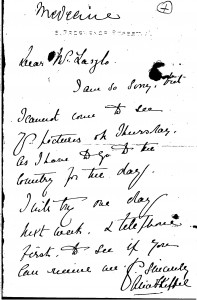 Medecine
Dear Mr. Laszlo.
I am so sorry but
I cannot come to see
yr pictures on Thursday.
as I have to go to the
country for the day.
I will try one day
next week. & telephone
first. to see if you
can receive me. Yr sincerely
Alice Keppel